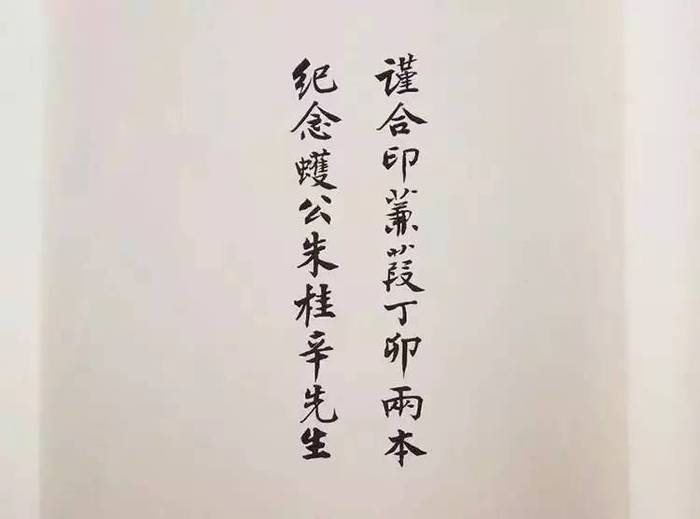 謹合印蒹葭丁卯兩本
紀念蠖公朱桂辛先生